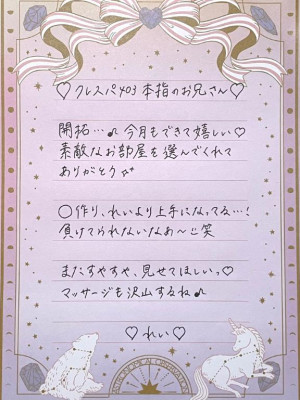 ♡ クレスパ403 本指のお兄さん♡
開拓…♪ 今月もできて嬉しい♡
素敵なお部屋を選んでくれて
ありがとう
〇作り、れいより上手になってる…!
負けてられないなあ〜笑
またすやすや、見せてほしいっ♡
マッサージも沢山するね♪
♡ れい ♡